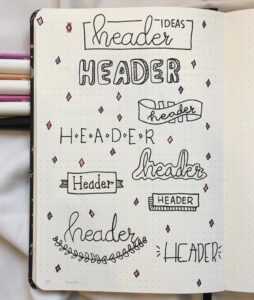 IDEAS
header
HEADER
header
H·E·A·D·E·R
header
Header
HEADER
header
HEADER